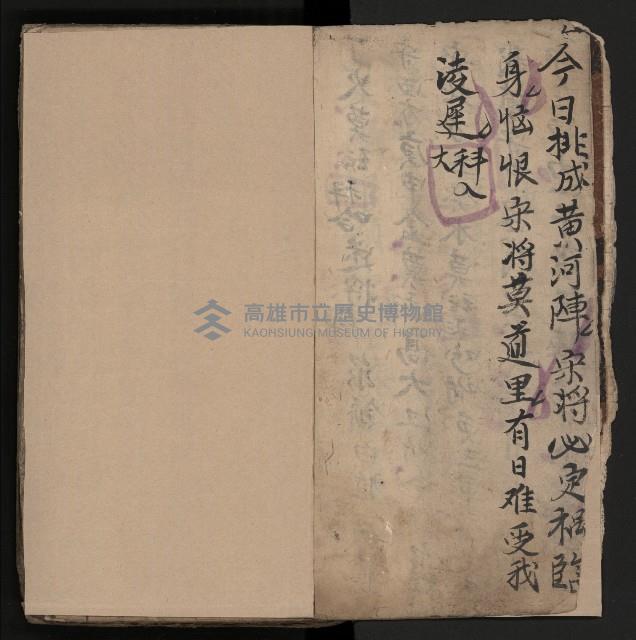 今日排成黃河陣宋將必定禍臨
身恼恨宋將莫道里有日难受我
淩遲
大拜入
高雄市立歷史博物館
KAOHSIUNG MUSEUM OF HISTORY